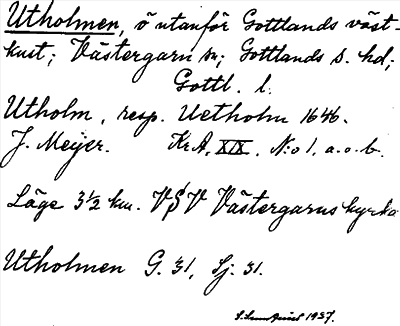 Utholmen, ö utanför Gottlands väst-
kust; Västergarn sn; Gottlands s. hd;
Gottl. l.
Utholm, resp. Uetholm 1646.
J. Meijer. Kr.A. XIX. N:o 1, a.o.b.
Läge 3 1/2 km. VSV Västergarns kyrka
Utholmen G. 31, Sj. 31.
1937.